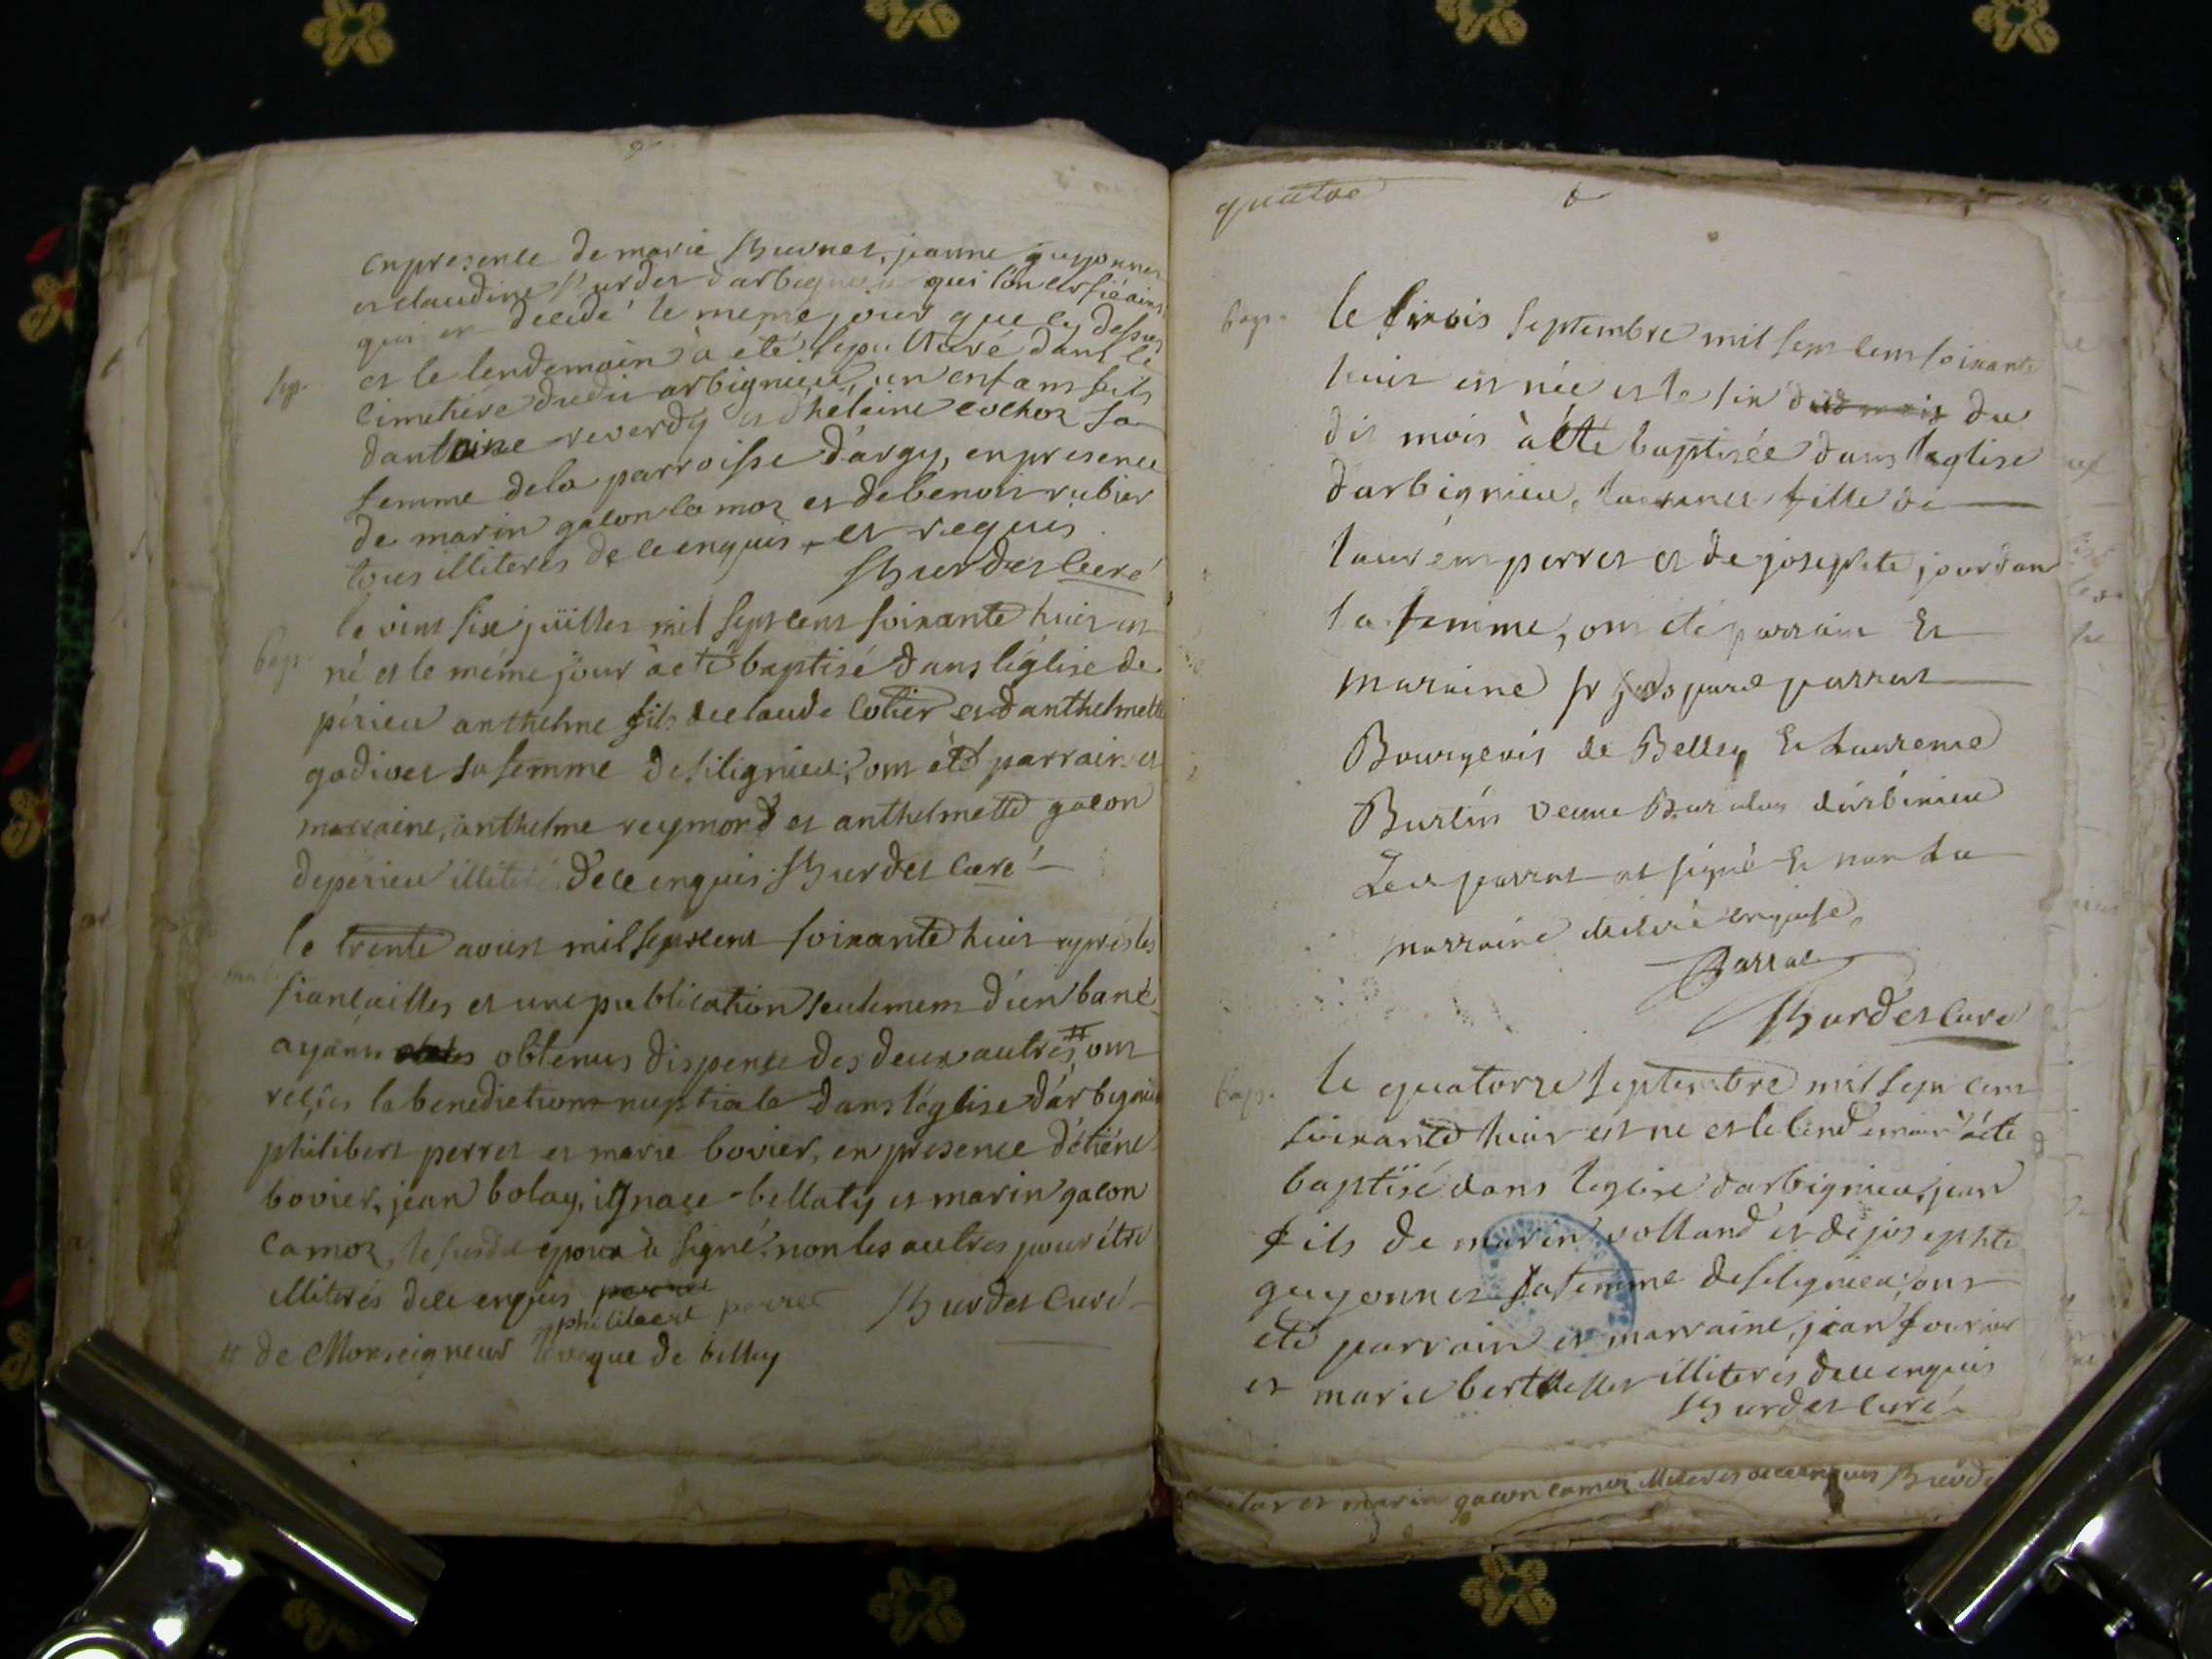 en presence de marie hurnet, jeanne guyonnet
et claudine hurdet d'arbignieu qui l'on
qui est decedé le meme jour que cy dessus
sep. et le lendemain à eté sepulturé dans le
cimetiére dudit arbignieu, un enfant fils
d'antoine reverdy et d'hélaine cochoz sa
femme de la parroisse d'argy, en presence
de marin gacon camoz et de benoit rubier
tous illiterés de ce enquis, et requis
hurdet curé
bap. le vint sixe jüillet mil sept cent soixante huit est
né et le méme jour à eté baptisé dans l'église de
périeu anthelme fils de claude cotier et d'anthelmette
godivet sa femme de silignieu, ont eté parrain et
marraine, anthelme reymond et anthelmette gacon
de périeu illiterés de ce enquis hurdet curé
le trente aoust mil sept cent soixante huit aprés les
fiançailles et une publication seulement d'un banc
ayant obtenus dispence des deux autres # ont
reçus la benediction nuptiale dans l'église d'arbignieu
philibert perret et marie bovier, en presence d'étiéne
bovier, jean bolay, ignace bellaty et marin gacon
camoz, le susdit epoux à signé, non les autres pour étre
illiterés de ce enquis perret
philibert perret hurdet curé
# de Monseigneur l'eveque de belley
quatre
bap. le sixois septembre mil sept cent soixante
huit est née et le six du
dit mois à été baptisée dans l'eglise
d'arbignieu, fille de
laurent perret et de josephte jourdan
sa femme, ont eté parrain Et
maraine sr parrat
Bourgeois de Belley Et Laurence
Burtin veuve d'arbinieu
Le parrat at signé Et non La
marraine enquise
Parrat
hurdet curé
bap. le quatorze septembre mil sept cent
soixante huit est né et le lendemain à été
baptisé dans l'eglise d'arbignieu, jean
fils de marin volland et de josephte
guyonnet sa femme de silignieu, ont
été parrain et marraine, jean fournier
et marie berthellet illiterés de ce enquis
hurdet curé
et marin gacon camoz illiterés de ce enquis